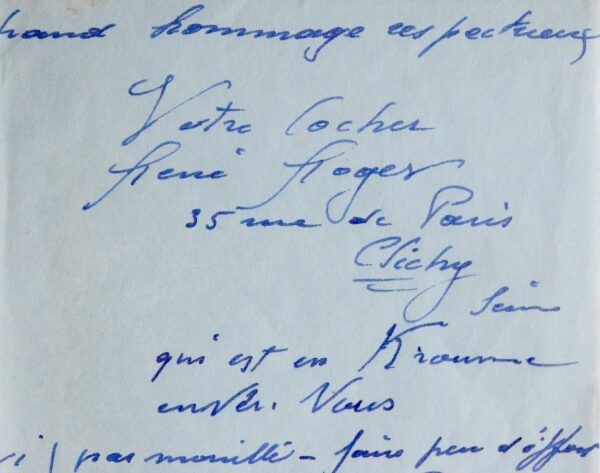 hommage respectueux
Votre Cocher
René Roger
35 rue de Paris
Clichy
Seine
qui est en
envers Vous
pas mouillé - faire peu d'effort